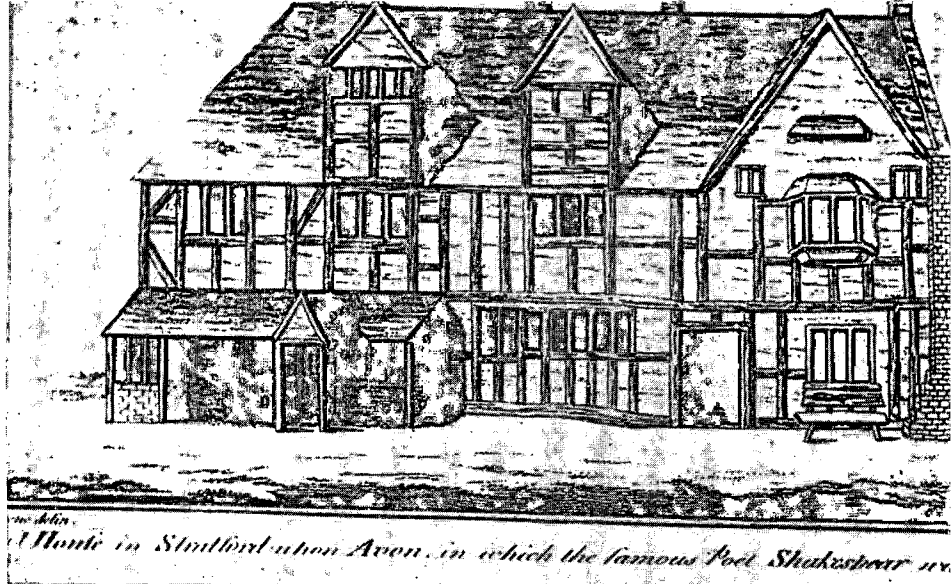 delin.
House in Stratford upon Avon, in which the famous Poet Shakespear